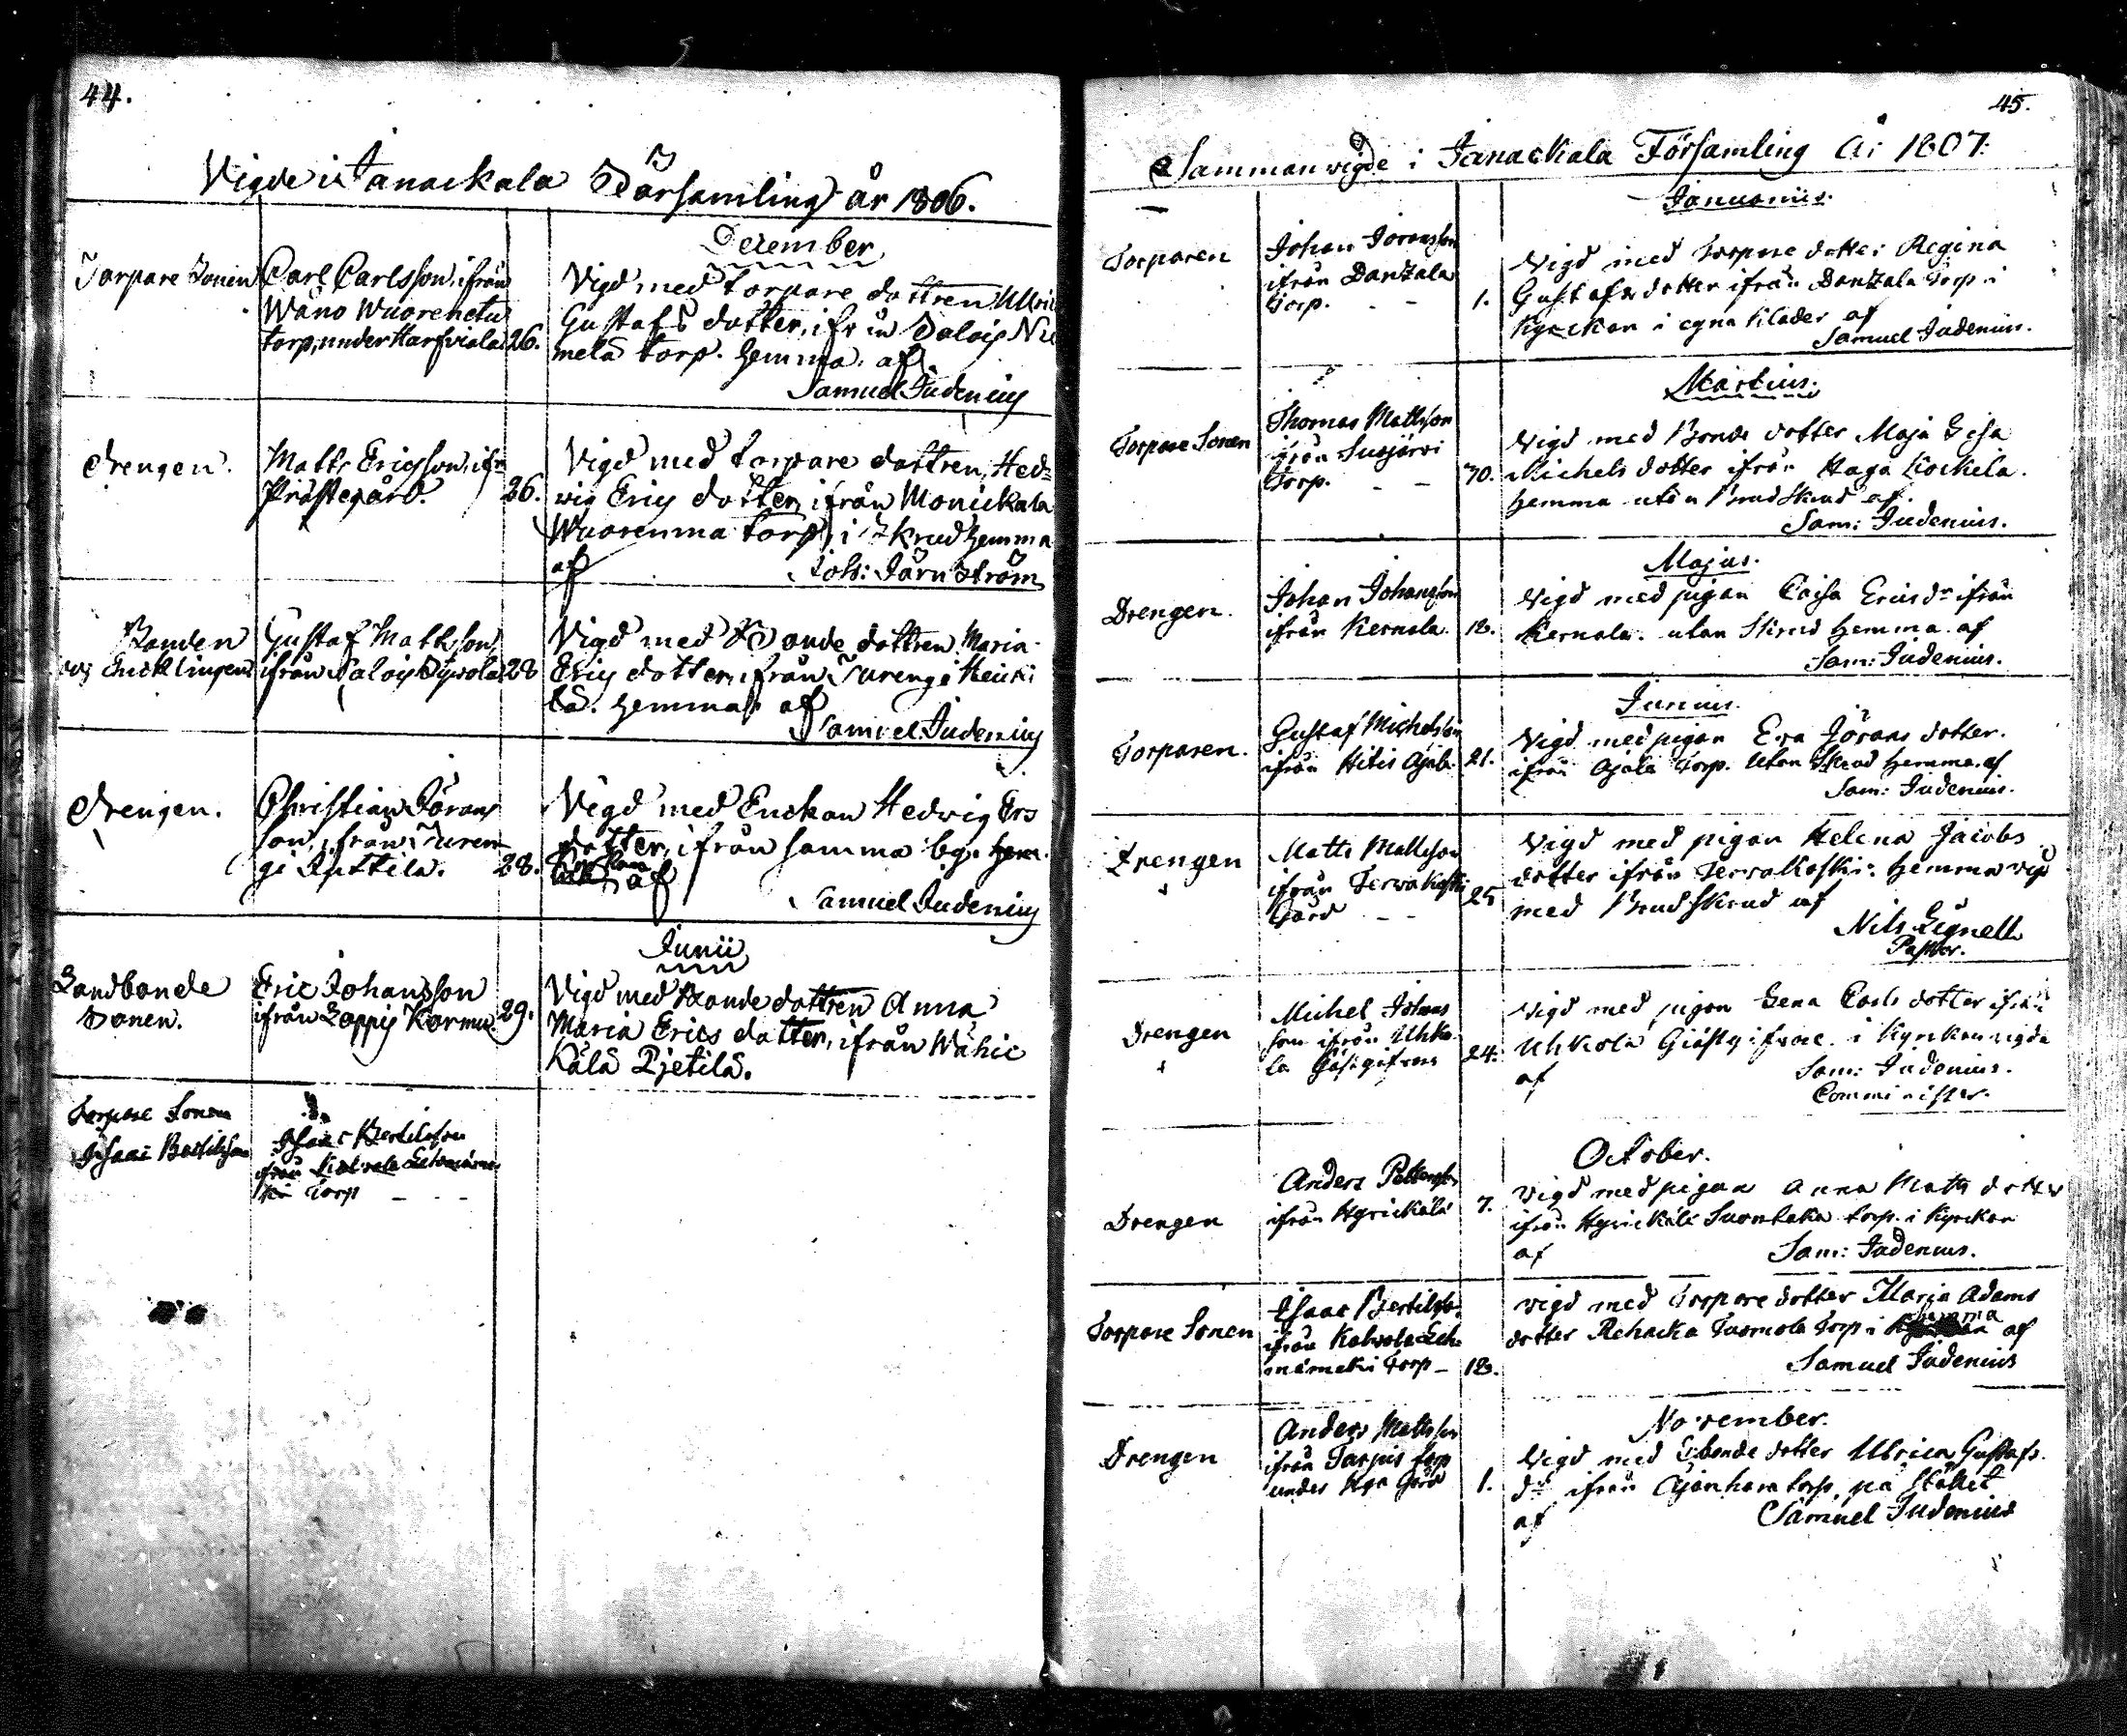 44.
Vigde i Janackala Församling år 1806.
December
Torpare Sonen
Carl Carlsson, ifrån
Wäno Wuorenetu
torp, under Harfviala
26.
Vigd med torpare dottren Ulric
Gustafs dotter, ifrån Salois
mela torp. hemma. af
Samuel Judenius
Drengen.
Matts Ericsson, ifn
Prästegård.
26.
Vigd med torpare dottren, Hed-
vig Erics dotter, ifrån Monickala
Wuorenma torp, i skrud hemma
af
Joh: Järnström
Bonden
Encklingen
Gustaf Mattsson,
ifrån Salois
28
Vigd med Bonde dottren Maria
Erics dotter, ifrån Turengi Heicki
lä. hemma af
Samuel Judenius
Drengen.
Christian Jörans
son, ifrån Turen
gi Juttila.
28.
Vigd med Enckan Hedvig Ers
dotter, ifrån samma by. hem.
af
Samuel Judenius
Junii
Landbonde
Sonen.
Eric Johansson
ifrån Loppis Kormu.
29.
Vigd med Bonde dottren Anna
Maria Erics dotter, ifrån Wähic
kälä Pjetilä.
Torpare Sonen
Isaac Bertilsson
Isaac Bertilsson
ifrån
ki Torp - - -
45.
Sammanvigde i Janackala Församling År 1807.
Januarius.
Torparen
Johan Joransson
ifrån Danzala
Torp. - -
1.
Vigd med Torpare dotter Regina
Gustafs dotter ifrån Danzala Torp i
Kyrckan i egna kläder af
Samuel Judenius.
Martius.
Torpare Sonen
Thomas Mattsson
ifrån Suojärvi
Torp. - -
30.
Vigd med Bonde dotter Maja Lisa
Michels dotter ifrån Haga Kockila.
hemma utan Brudskrud af.
Sam: Judenius.
Majus.
Drengen.
Johan Johansson
ifrån Kernala.
18.
Vigd med pigan Caisa Ericsdr ifrån
Kernala. utan Skrud hemma. af
Sam: Judenius.
Junius.
Torparen.
Gustaf Michelsson
ifrån Hitis
21.
Vigd med pigan Eva Jörans dotter.
ifrån Ajala Torp. Utan Skrud hemma. af
Sam: Judenius.
Drengen
Matts Mattsson
ifrån Terwakoski
Gård - -
25
Vigd med pigan Helena Jacobs
dotter ifrån Terwakoski: hemma vigd
med Brudskrud af
Nils Lignell
Pastor.
Drengen
Michel Johans
son ifrån Uhko
la Gästgifvare
24.
Vigd med pigan Lena Carls dotter ifrån
Uhkola Gästgifvare. i Kyrckan vigda
af
Sam: Judenius.
Comminister.
October.
Drengen
Anders Pettersson
ifrån Hyrickälä
7.
Vigd med pigan Anna Matts dotter
ifrån Hyrickälä Suontaka torp. i Kyrckan
af
Sam: Judenius.
Torpare Sonen
Isaac Bertilsson
ifrån Kalvola
mäki Torp -
18.
Vigd med Torpare dotter Maria Adams
dotter Rehacka Tuomola Torp i hemma af
Samuel Judenius
November.
Drengen
Anders Mattsson
ifrån Tarjus torp
under Gård
1.
Vigd med bonde dotter Ulrica Gustafs
dr ifrån torp, på stället
af
Samuel Judenius